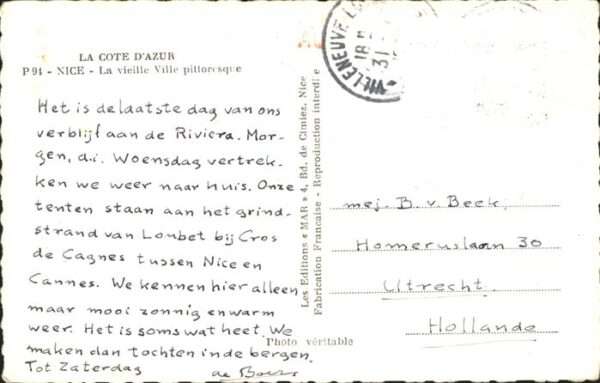 LA COTE D'AZUR
P 94 - NICE - La vieille Ville pittoresque
Het is de laatste dag van ons
verblijf aan de Riviera. Mor-
gen, d.i. Woensdag vertrek-
ken we weer naar huis. Onze
tenten staan aan het grind-
strand van Loubet bij Cros
de Cagnes tussen Nice en
Cannes. We kennen hier alleen
maar mooi zonnig en warm
weer. Het is soms wat heet. We
maken dan tochten in de bergen.
Tot Zaterdag
de
Photo véritable
Les Editions « MAR » 4, Bd. de Cimiez, Nice
Fabrication Française - Reproduction interdite
VILLENEUVE LO
18
31
mej. B. v. Beek.
Homeruslaan 30
Utrecht.
Hollande